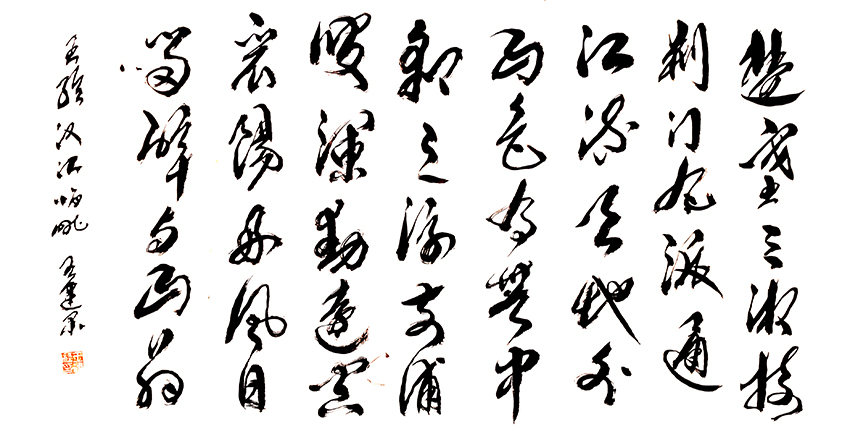 楚塞三湘接
荆门九派通
江流天地外
山色有無中
郡邑浮前浦
波澜動遠空
襄陽好风日
留醉与山翁
王維汉江临眺